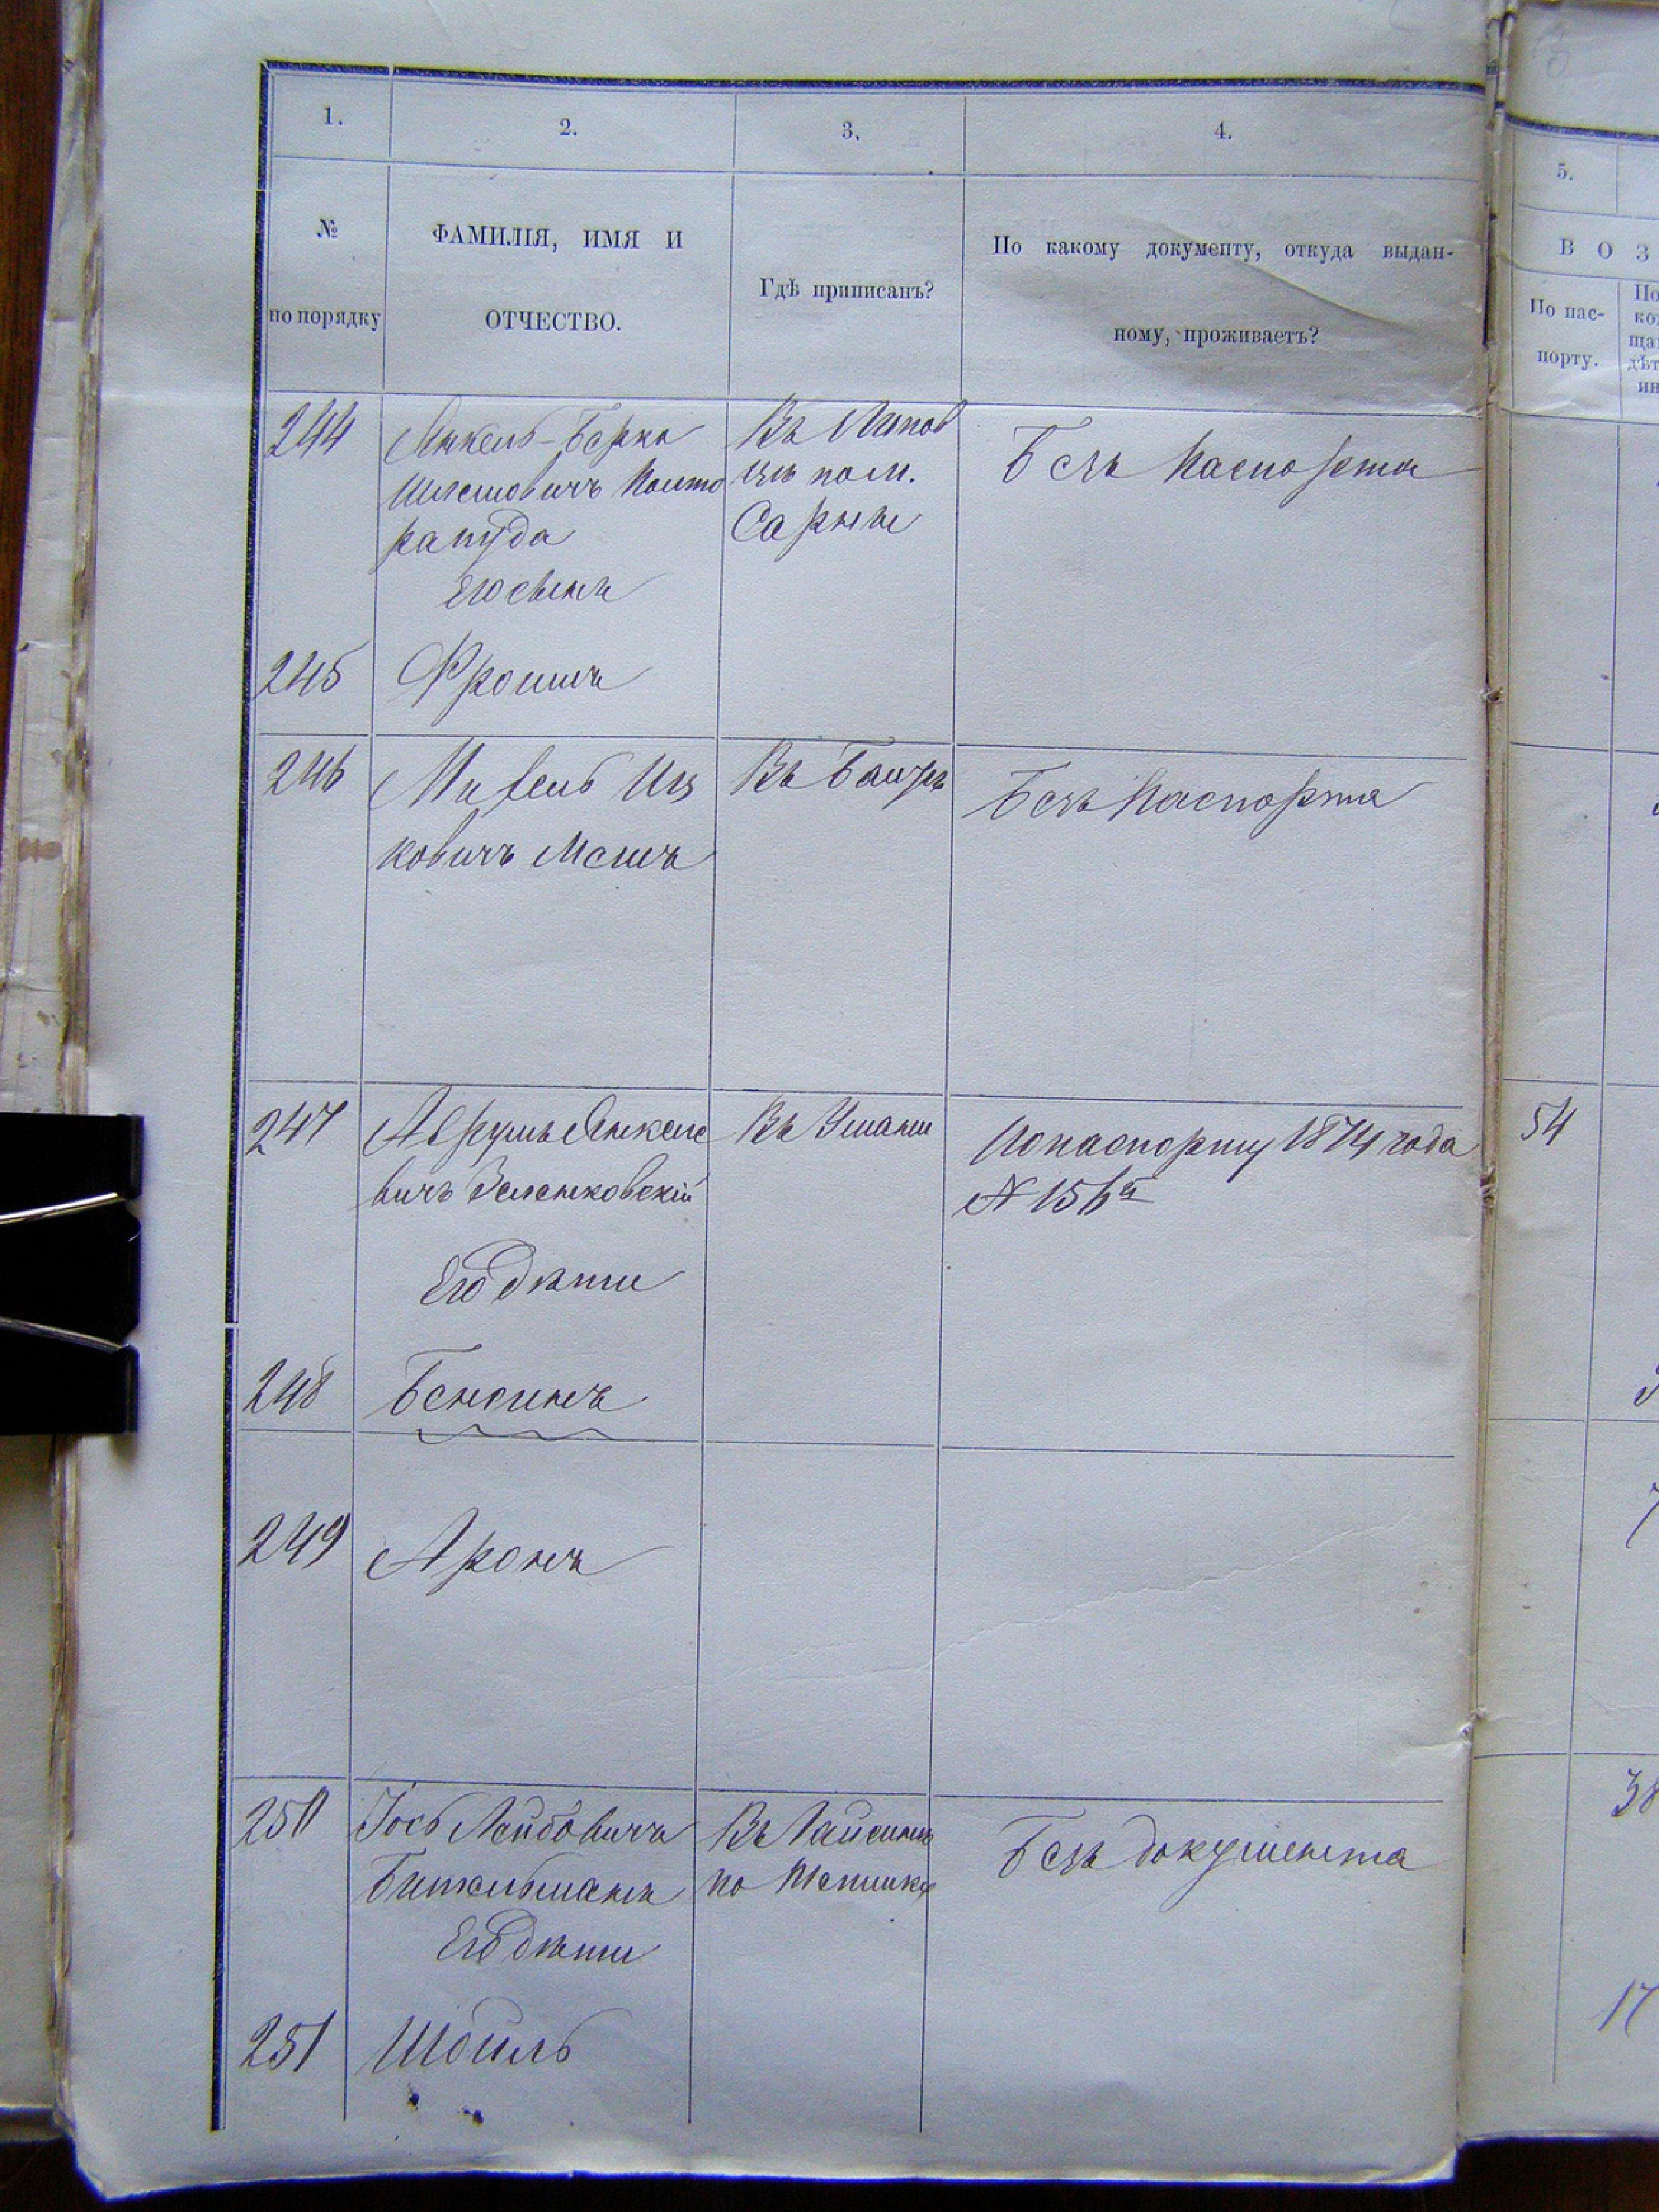 1.
2.
3.
4.
5.
№
по порядку
ФАМИЛІЯ, ИМЯ И
ОТЧЕСТВО.
Гдѣ приписанъ?
По какому документу, откуда выдан-
ному, проживаетъ?
В О З
По пас-
порту.
244
Янкель-Берко
Шлемовичъ Полто
рапуда
Его сынъ
Въ Липов
цѣ пом.
Сарны
Безъ паспорта
245
Фроимъ
246
Ицковичъ
Безъ паспорта
247
Аврумъ Янкеле
вичъ Зеленковскій
Его дѣти
Въ Умани
По паспорту 1874 года
№ 156й
54
248
Бенсинъ
249
Аронъ
250
Іось Лейбовичъ
Биткельманъ
Его дѣти
Въ
по
Безъ документа
38
251
Шоиль
17